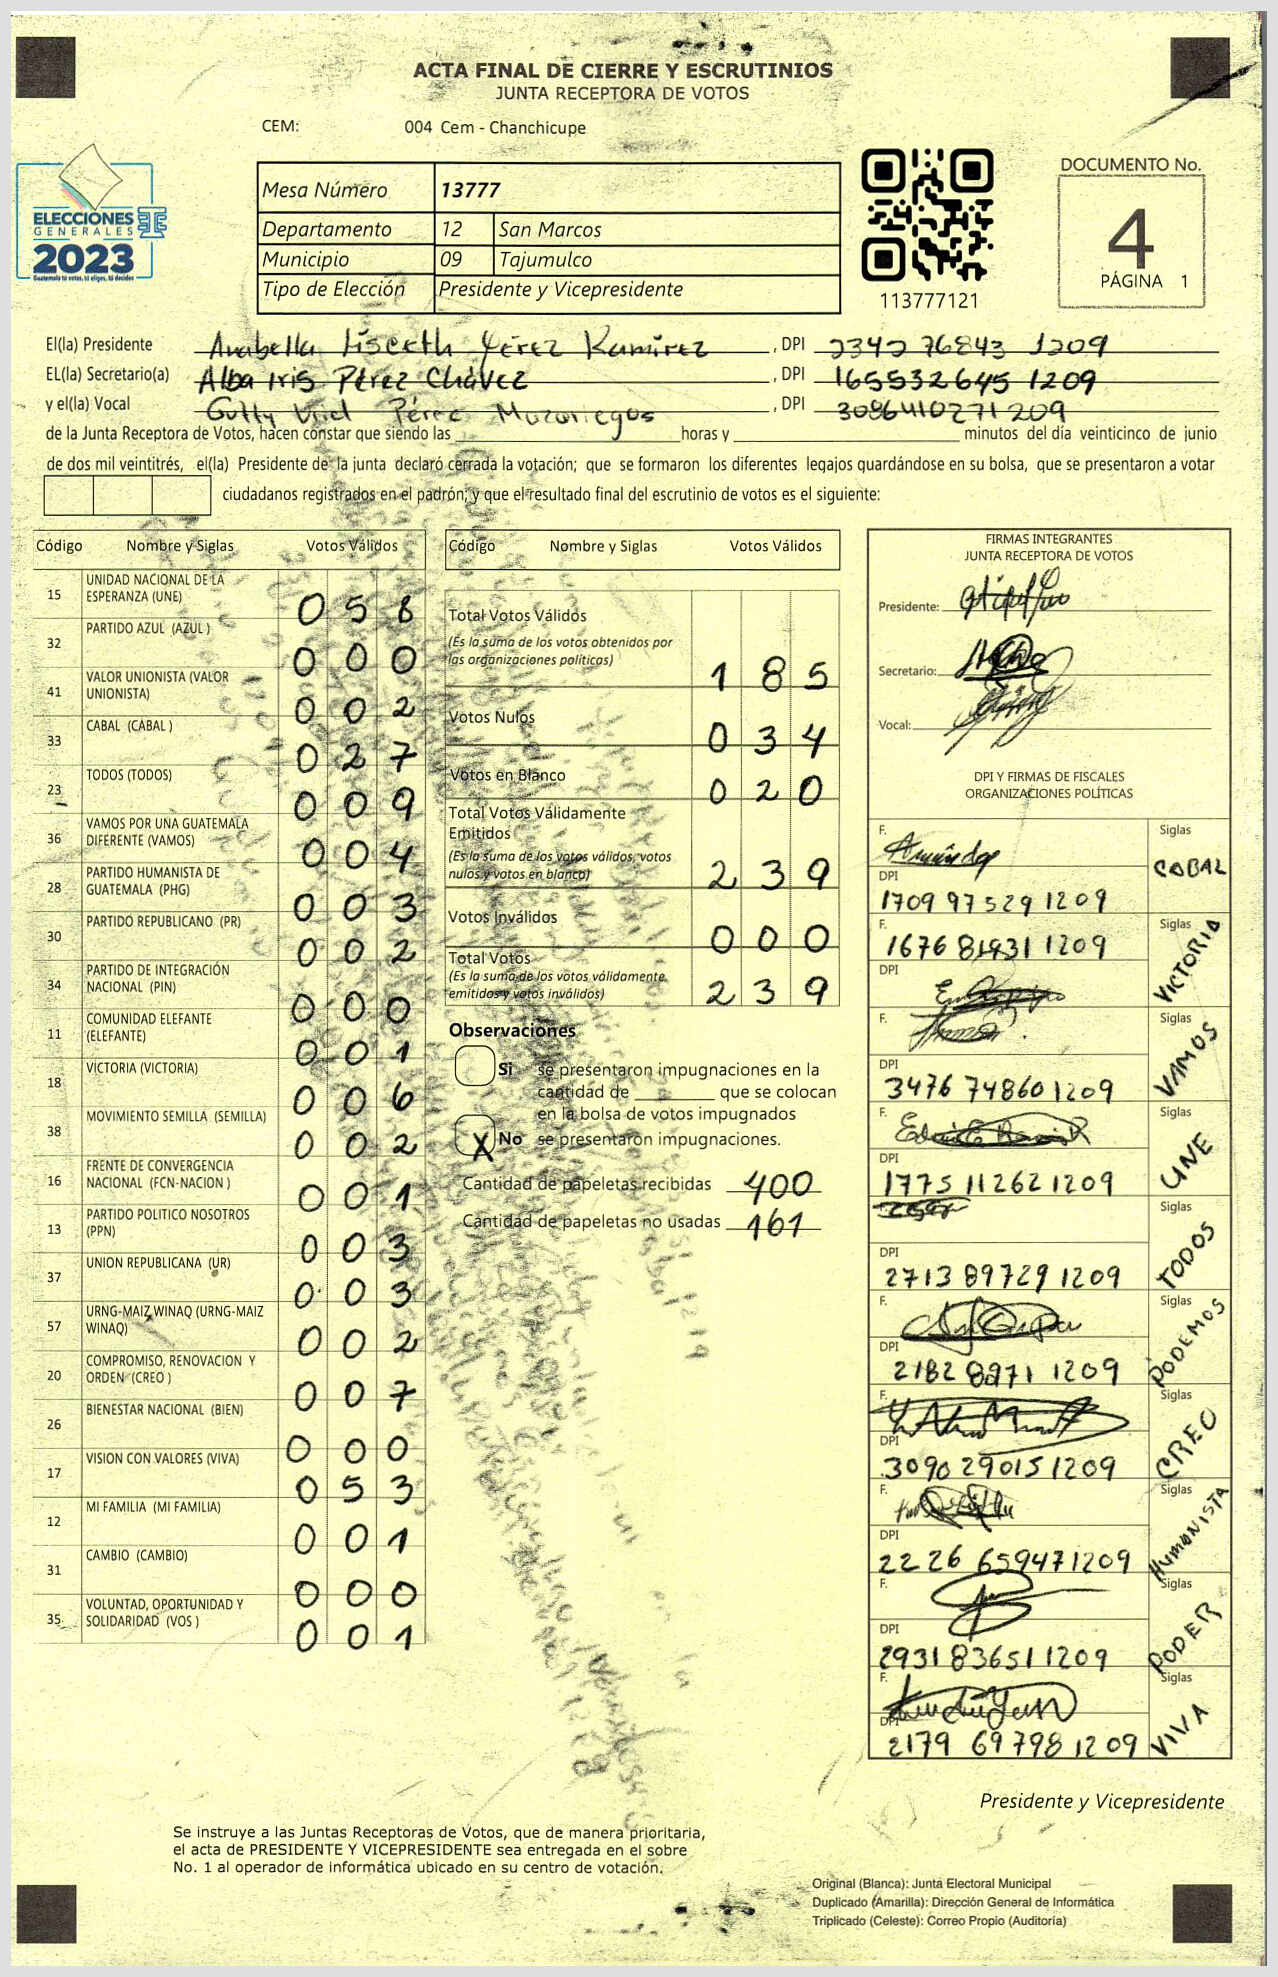 ACTA FINAL DE CIERRE Y ESCRUTINIOS
JUNTA RECEPTORA DE VOTOS
CEM: 004 Cem - Chanchicupe
ELECCIONES
GENERALES
2023
Guatemala tú votas, tú eliges, tú decides
Mesa Número 13777
Departamento 12 San Marcos
Municipio 09 Tajumulco
Tipo de Elección Presidente y Vicepresidente
113777121
DOCUMENTO No.
4
PÁGINA 1
El(la) Presidente Anabella Lisceth Pérez Ramírez, DPI 2342 76843 1209
EL(la) Secretario(a) Alba Iris Pérez Chávez, DPI 165532645 1209
y el(la) Vocal Pérez Mazariegos, DPI 3086410271209
de la Junta Receptora de Votos, hacen constar que siendo las horas y minutos del día veinticinco de junio
de dos mil veintitrés, el(la) Presidente de la junta declaró cerrada la votación; que se formaron los diferentes legajos guardándose en su bolsa, que se presentaron a votar
ciudadanos registrados en el padrón; y que el resultado final del escrutinio de votos es el siguiente:
Código Nombre y Siglas Votos Válidos
15 UNIDAD NACIONAL DE LA ESPERANZA (UNE) 058
32 PARTIDO AZUL (AZUL ) 000
41 VALOR UNIONISTA (VALOR UNIONISTA) 002
33 CABAL (CABAL ) 027
23 TODOS (TODOS) 009
36 VAMOS POR UNA GUATEMALA DIFERENTE (VAMOS) 004
28 PARTIDO HUMANISTA DE GUATEMALA (PHG) 003
30 PARTIDO REPUBLICANO (PR) 002
34 PARTIDO DE INTEGRACIÓN NACIONAL (PIN) 000
11 COMUNIDAD ELEFANTE (ELEFANTE) 001
18 VICTORIA (VICTORIA) 006
38 MOVIMIENTO SEMILLA (SEMILLA) 002
16 FRENTE DE CONVERGENCIA NACIONAL (FCN-NACION ) 001
13 PARTIDO POLITICO NOSOTROS (PPN) 003
37 UNION REPUBLICANA (UR) 003
57 URNG-MAIZ WINAQ (URNG-MAIZ WINAQ) 002
20 COMPROMISO, RENOVACION Y ORDEN (CREO ) 007
26 BIENESTAR NACIONAL (BIEN) 000
17 VISION CON VALORES (VIVA) 053
12 MI FAMILIA (MI FAMILIA) 001
31 CAMBIO (CAMBIO) 000
35 VOLUNTAD, OPORTUNIDAD Y SOLIDARIDAD (VOS ) 001
Código Nombre y Siglas Votos Válidos
Total Votos Válidos
(Es la suma de los votos obtenidos por
las organizaciones políticas) 185
Votos Nulos 034
Votos en Blanco 020
Total Votos Válidamente
Emitidos
(Es la suma de los votos válidos, votos
nulos y votos en blanco) 239
Votos Inválidos 000
Total Votos
(Es la suma de los votos válidamente
emitidos y votos inválidos) 239
Observaciones
Si se presentaron impugnaciones en la
cantidad de que se colocan
en la bolsa de votos impugnados
X No se presentaron impugnaciones.
Cantidad de papeletas recibidas 400
Cantidad de papeletas no usadas 161
FIRMAS INTEGRANTES
JUNTA RECEPTORA DE VOTOS
Presidente:
Secretario:
Vocal:
DPI Y FIRMAS DE FISCALES
ORGANIZACIONES POLÍTICAS
F. Siglas CABAL
DPI 1709 97529 1209
F. 1676 81931 1209 Siglas VICTORIA
DPI
F. Siglas VAMOS
DPI 3476 74860 1209
F. Siglas UNE
DPI 1775 11262 1209
Siglas TODOS
DPI 2713 89729 1209
F. Siglas PODEMOS
DPI 2182 8971 1209
F. Siglas CREO
DPI 3090 29015 1209
F. Siglas HUMANISTA
DPI 2226 65947 1209
F. Siglas PODER
DPI 2931 83651 1209
F. Siglas VIVA
DPI 2179 69798 1209
Presidente y Vicepresidente
Se instruye a las Juntas Receptoras de Votos, que de manera prioritaria,
el acta de PRESIDENTE Y VICEPRESIDENTE sea entregada en el sobre
No. 1 al operador de informática ubicado en su centro de votación.
Original (Blanca): Junta Electoral Municipal
Duplicado (Amarilla): Dirección General de Informática
Triplicado (Celeste): Correo Propio (Auditoría)